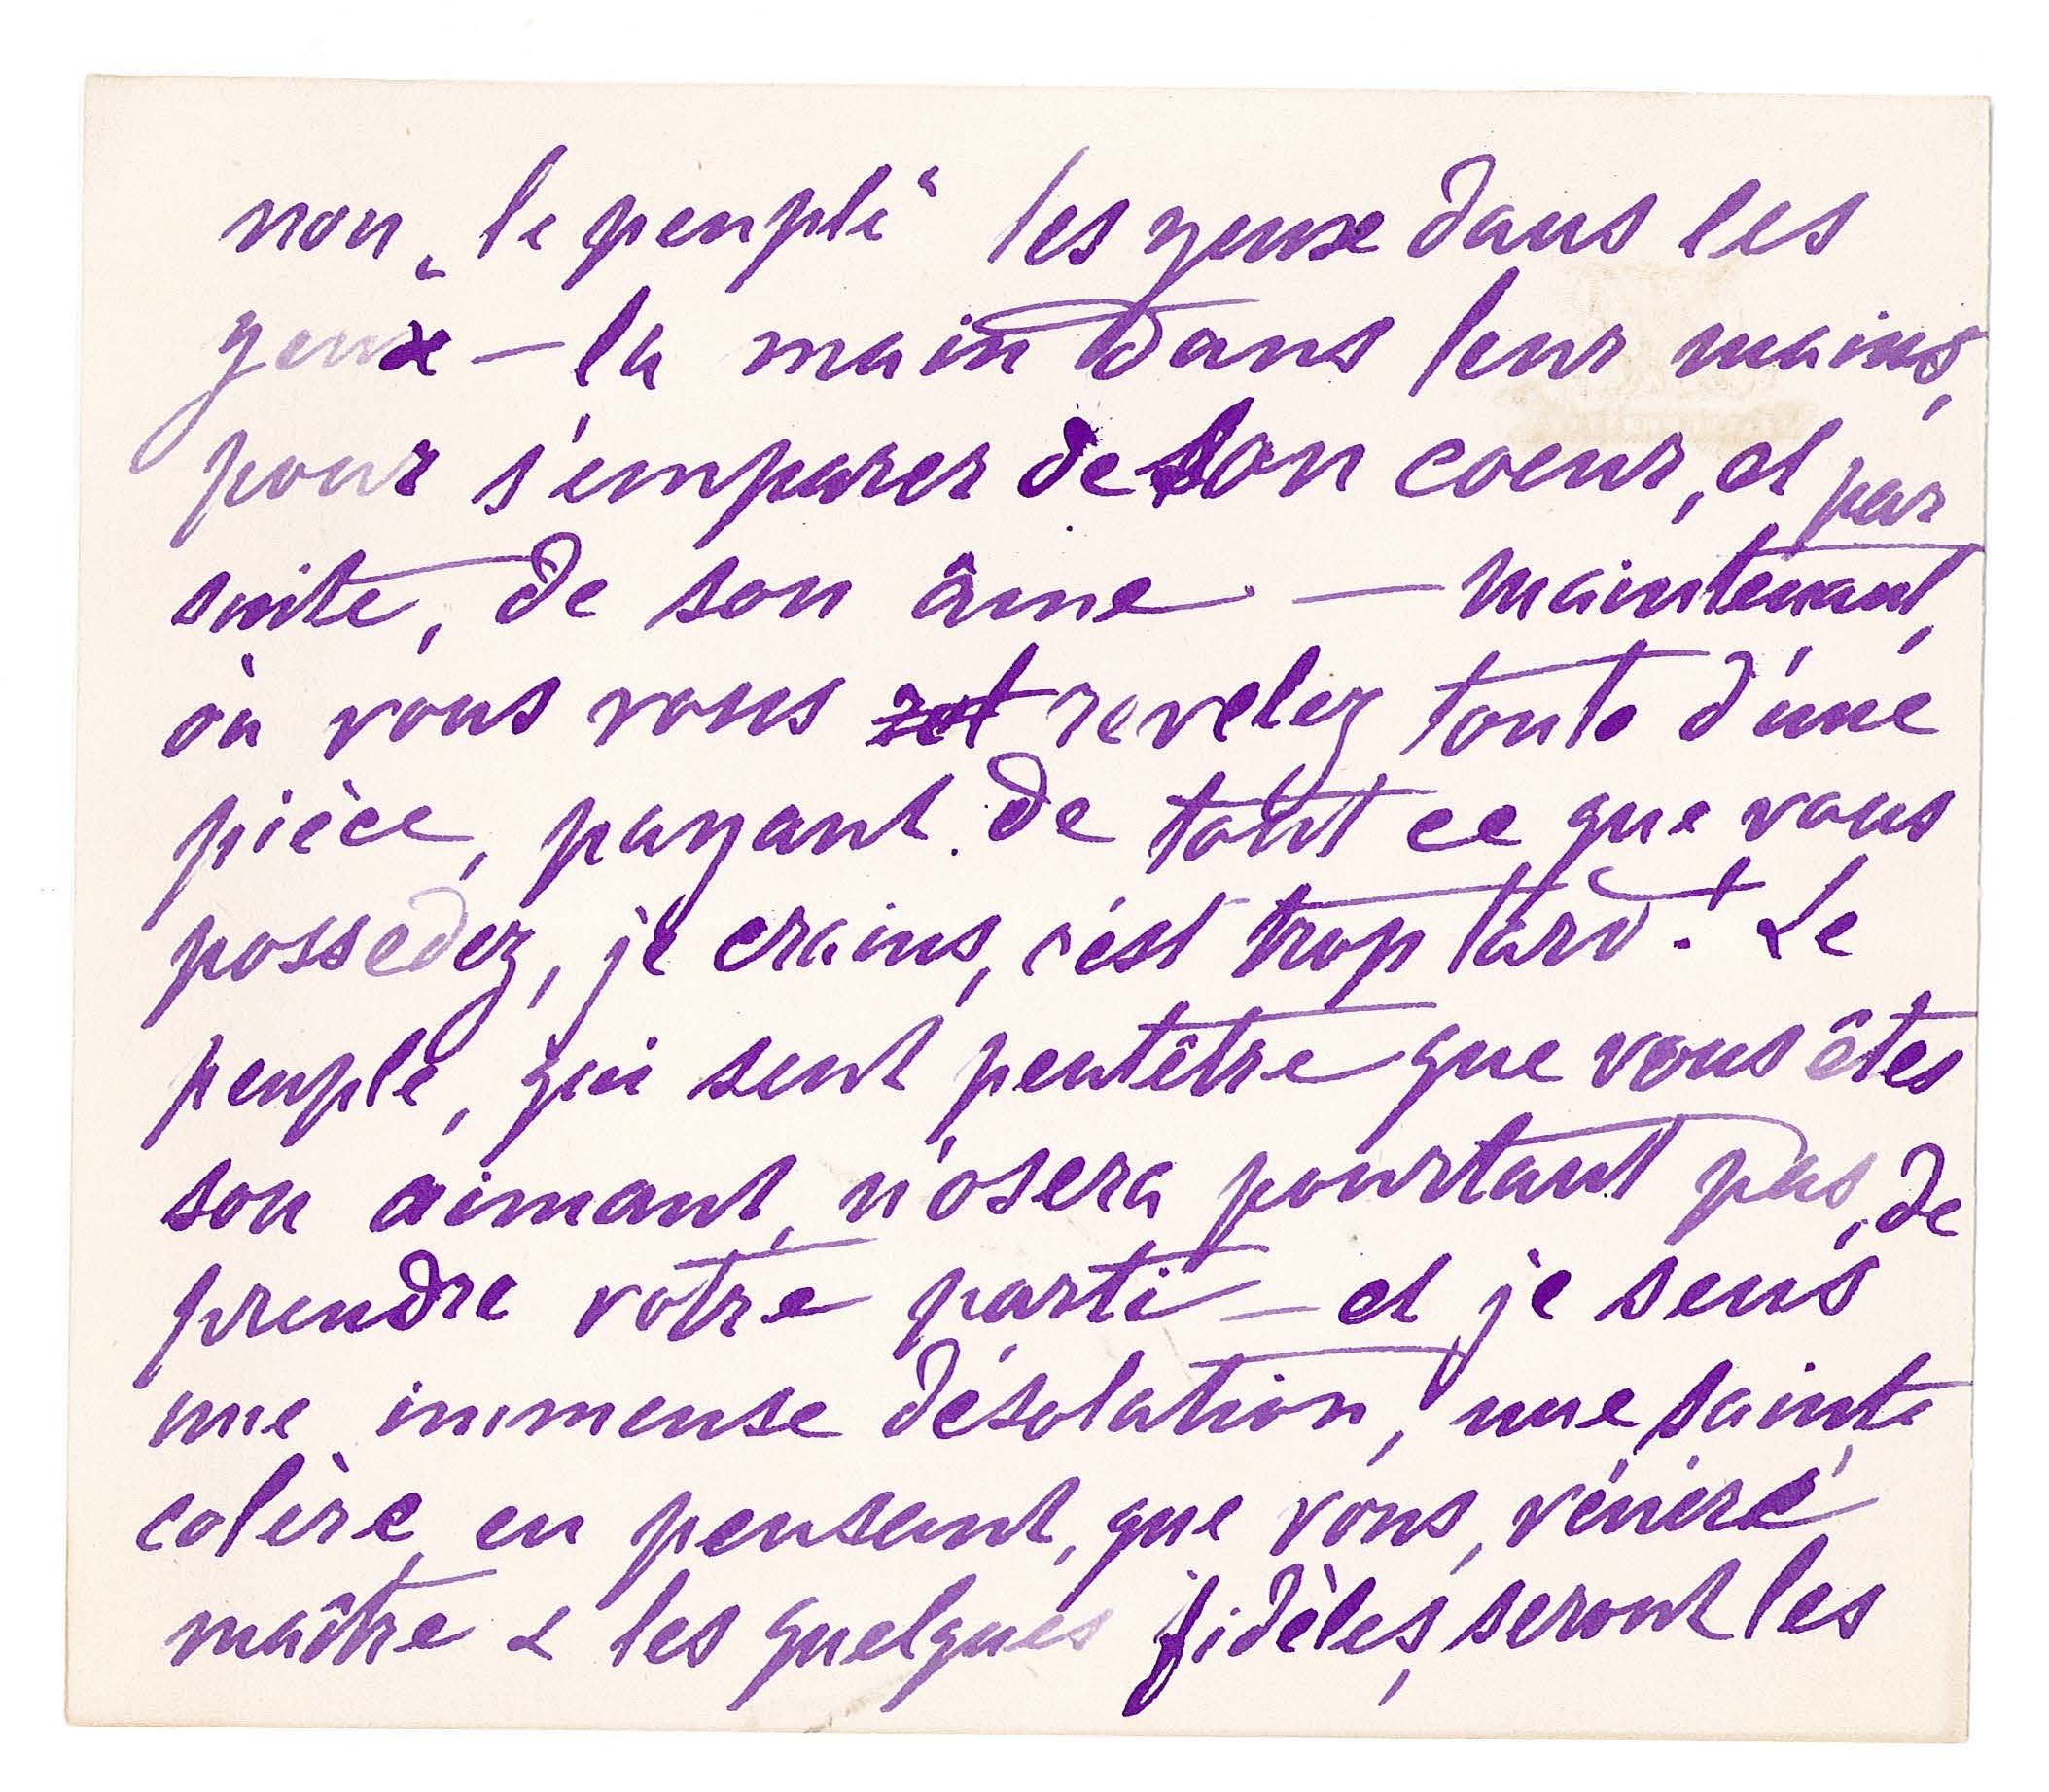 non „le peuple“ les yeux dans les
yeux — la main dans leur mains,
pour s'emparer de son coeur, et par
suite, de son âme — maintenant,
où vous vous revelez toute d'une
pièce, payant de tout ce que vous
possedez, je crains, c'est trop tard! Le
peuple, qui sent peutêtre que vous êtes
son aimant, n'osera pourtant pas, de
prendre votre parti — et je sens
une immense désolation, une sainte
colère, en pensant, que vous, vénéré
maître & les quelques fidèles, seront les